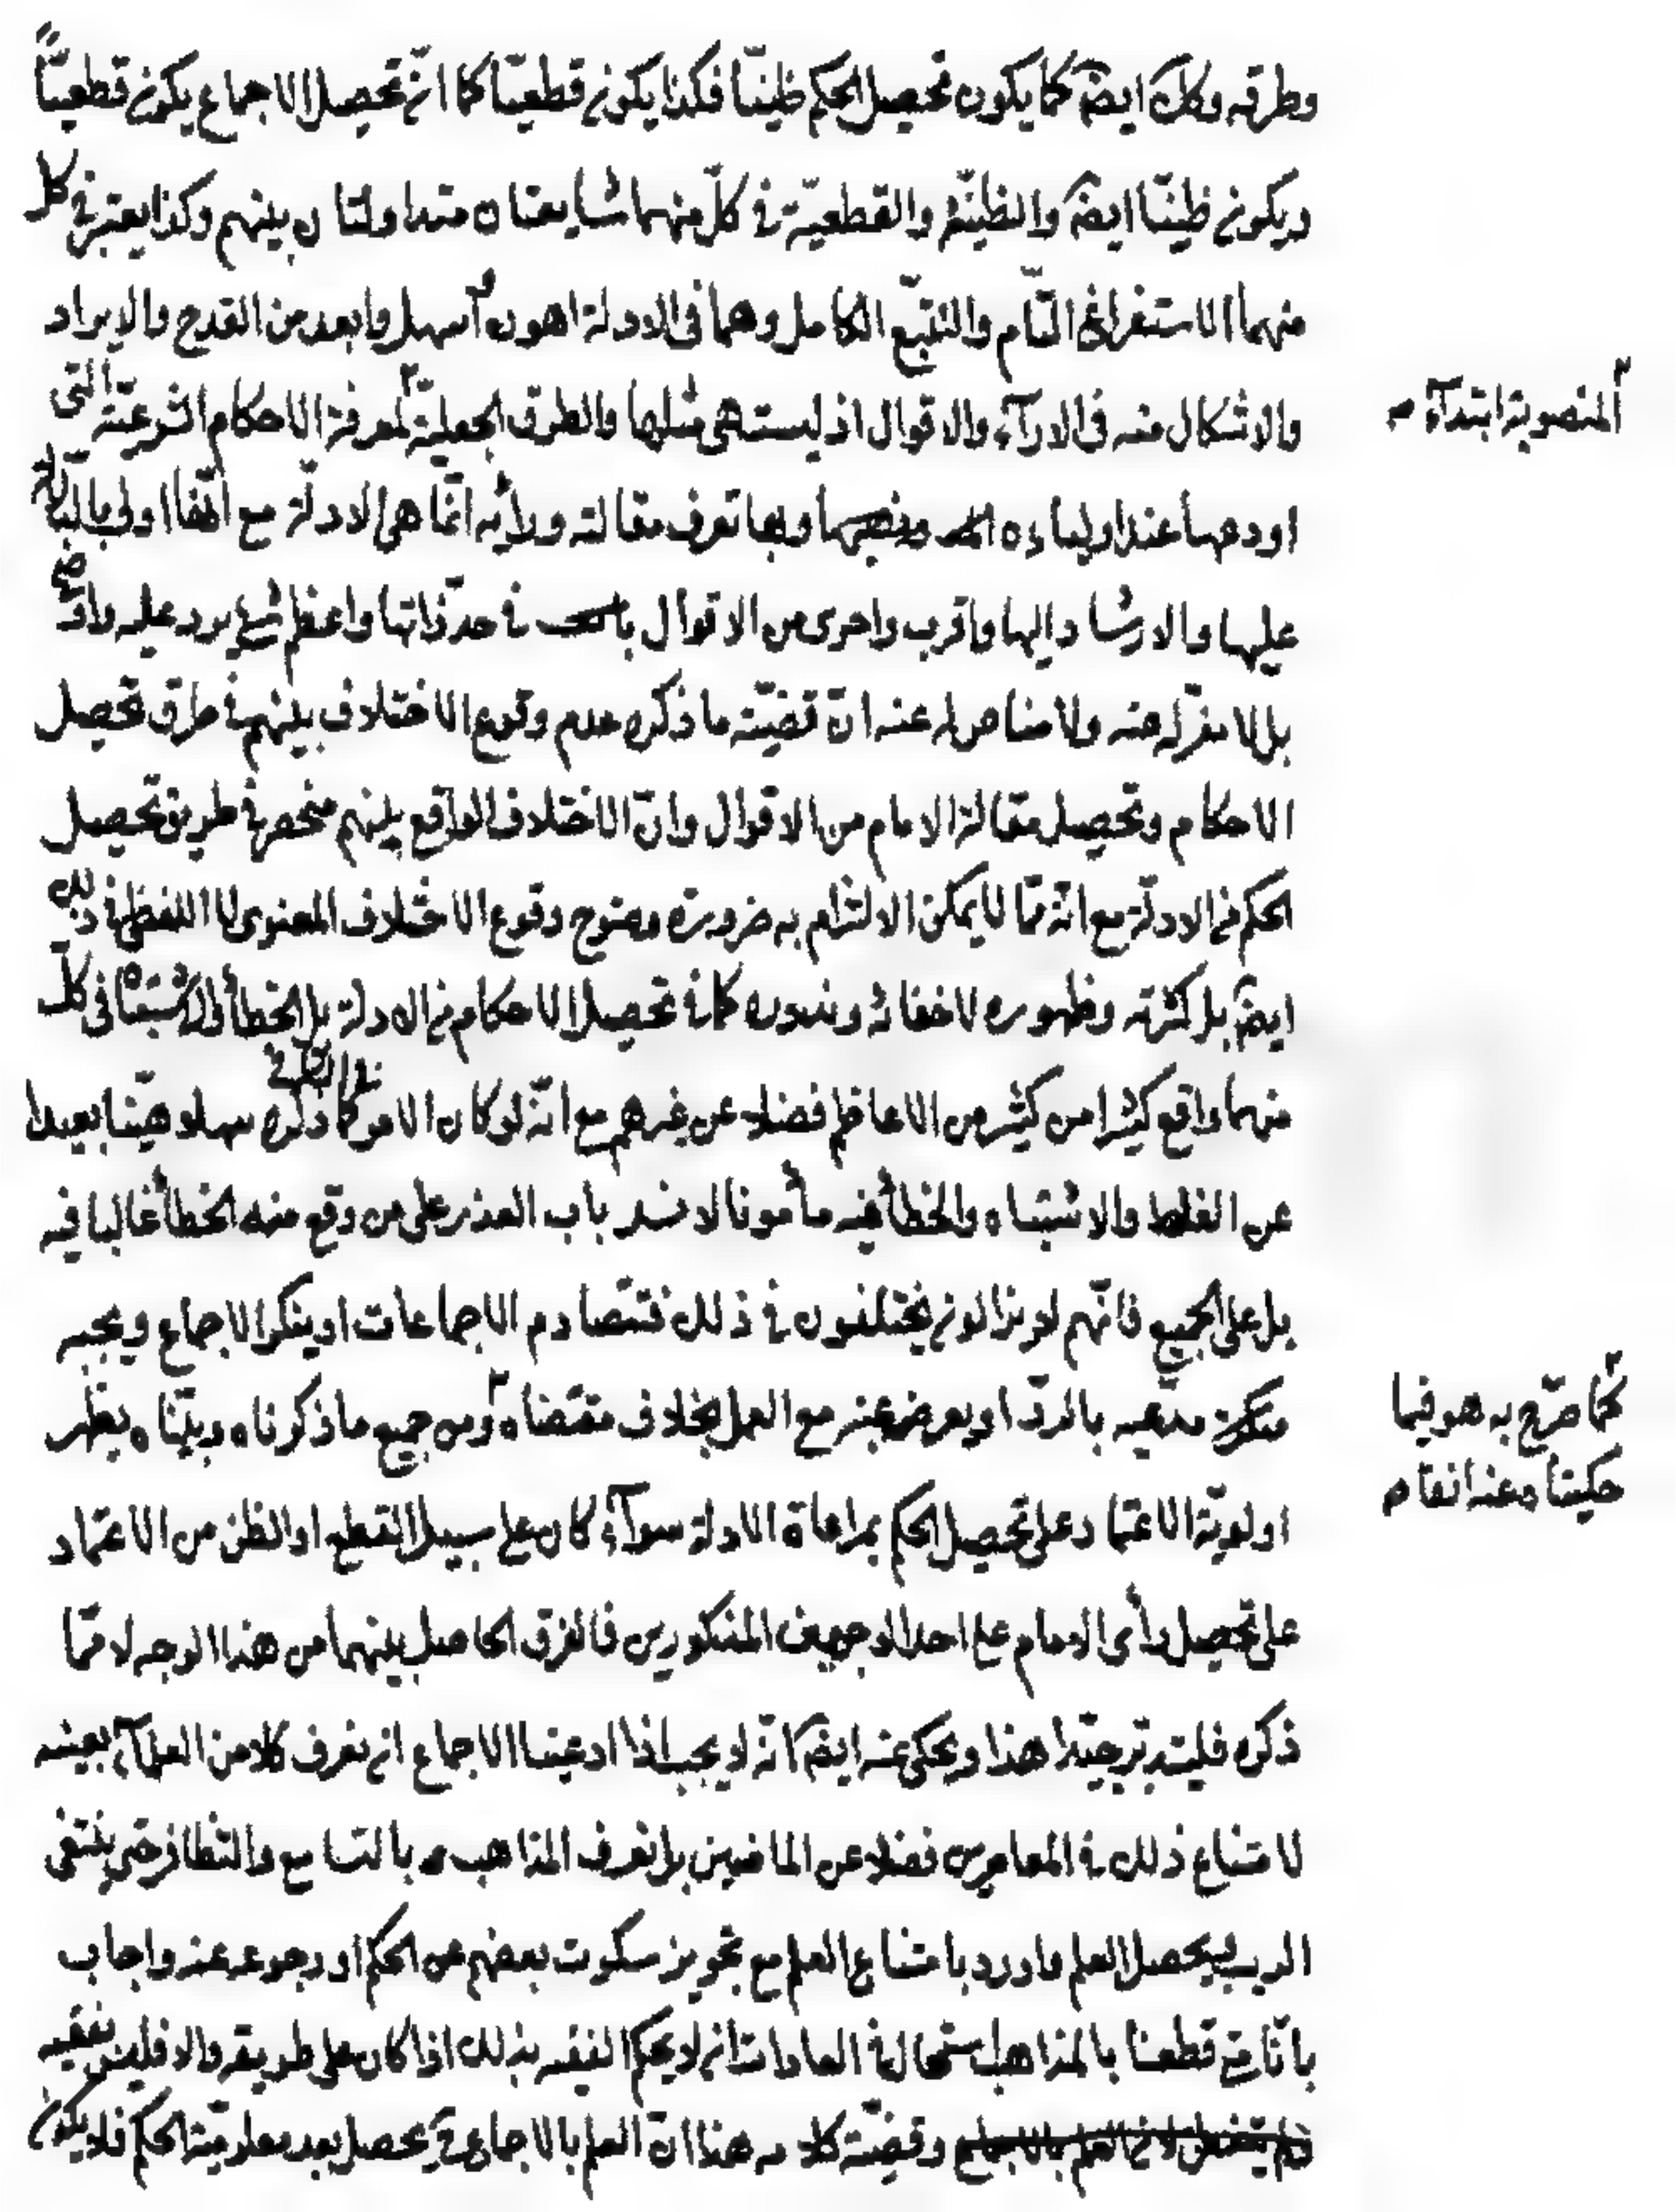 وطرقه وكك ايضا كما يكون تحصيل الحكم ظنيّا فكذا يكون قطعيّا كما انّ تحصيل الاجماع يكون قطعيّاً
ويكون ظنيّا ايضا والظنيّة والقطعيّة في كلّ منهما شايعتان متداولتان بينهم وكذا يعتبر في كل
منهما الاستفراغ التّام والتتبّع الكامل وهما في الادلة اهون واسهل وابعد من القدح والايراد
والاشكال منه في الاراء والاقوال اذ ليست هي مثلها والطرق الجعلية لمعرفة الاحكام الشرعيّة التي
المنصوبة ابتداء
اودعها عند اوليائه وبها تعرف مقالته ورأيه انّما هي الادلّة مع انّها اولى بالدلالة
عليها والارشاد اليها واقرب واحرى من الاقوال في حدّ ذاتها واعظم شيء يرد عليه واوضح
بل لا مفرّ له منه ولا مناص له عنه انّ قضيّة ما ذكره عدم وقوع الاختلاف بينهم في طرق تحصيل
الاحكام وتحصيل مقالة الامام من الاقوال وانّ الاختلاف الواقع بينهم منحصر في طريق تحصيل
الحكم من الادلّة مع انّه ممّا لا يمكن الالتزام به ضرورة وضوح وقوع الاختلاف المعنوى لا اللفظى في ذلك
ايضا بل كثرته وظهوره لا خفائه وندوره كما في تحصيل الاحكام من الادلة بل الخطأ والاشتباه في كلّ
منهما واقع كثيرا من كثير من الاعاظم فضلا عن غيرهم مع انّه لو كان الامر كما ذكره سهلا هيّنا بعيدا
عن الغلط والاشتباه والخطأ فيه مأمونا لانسد باب العذر على من وقع منه الخطأ غالبا فيه
بل على الجميع فانّهم لا يزالون يختلفون في ذلك فتتصادم الاجماعات او ينكر الاجماع ويجبه
منكره مدّعيه بالردّ او يعرض عنه مع العمل بخلاف مقتضاه ومن جميع ما ذكرناه وبيّناه يظهر
كما صرّح به هو فيما
حكيناه عنه انفا
اولويّة الاعتماد على تحصيل الحكم بمراعاة الادلة سواء كان على سبيل القطع او الظن من الاعتماد
على تحصيل رأى الامام على احد الوجهين المذكورين فالفرق الحاصل بينهما من هذا الوجه لا ممّا
ذكره فليتدبّر جيّدا هذا ويحكى عنه ايضا انّه لا يجب اذا ادعينا الاجماع ان نعرف كلا من العلماء بعينه
لامتناع ذلك في المعاصرين فضلا عن الماضين بل نعرف المذاهب بالتسامع والتظافر حتى ينتفى
الريب فيحصل العلم واورد بامتناع العلم مع تجويز سكوت بعضهم عن الحكم او رجوعه عنه واجاب
بانّا متى قطعنا بالمذاهب استحال في العادات ان لا يحكم الفقيه بذلك اذا كان على طريقه والا فليس بفقيه
وقضيّة كلامه هنا انّ العلم بالاجماع يحصل بعد معلوميّة الحكم فلا يكون